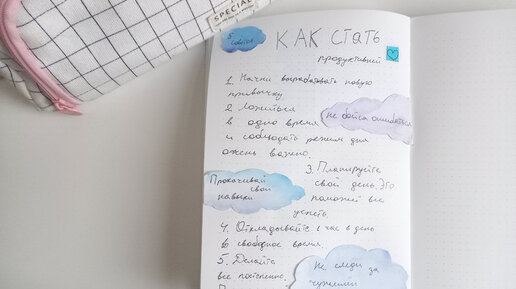 SPECIAL
5 советов
КАК СТАТЬ
продуктивней
1. Начни вырабатывать новую
привычку
2. Ложиться
в одно время
и соблюдать режим дня
очень важно.
Не бойся ошибаться
3. Планируйте
свой день. Это
поможет все
успеть.
Прокачивай
свои
навыки
4. Откладывайте 1 час в день
в свободное время.
5. Делайте
все постепенно.
Не следи за
чужими